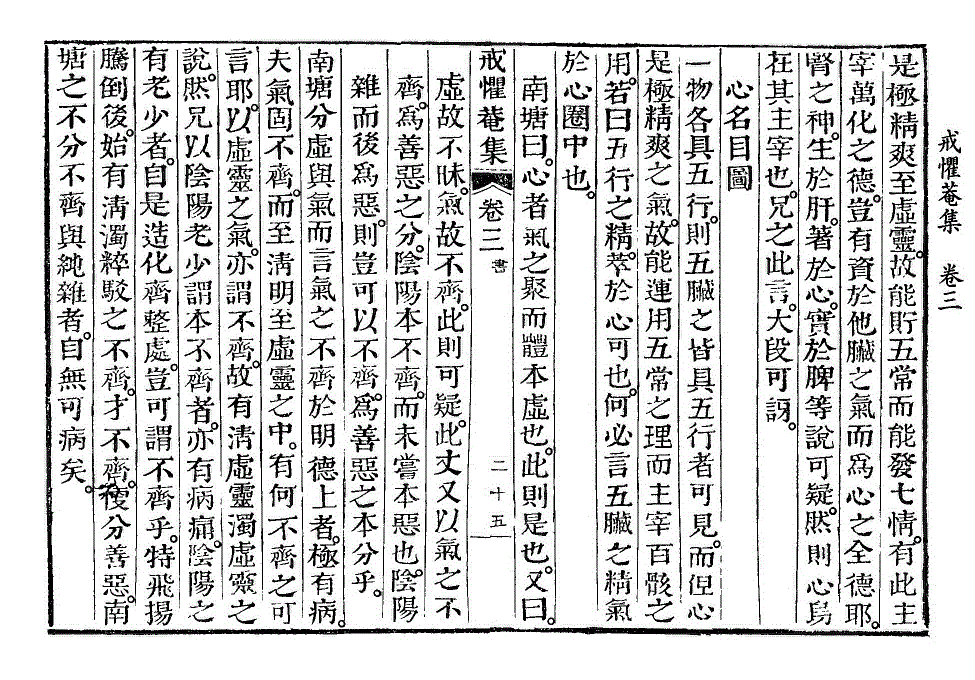 戒懼菴集　卷三
是極精爽至虛靈。故能貯五常而能發七情。有此主
宰萬化之德。豈有資於他臟之氣而爲心之全德耶。
腎之神。生於肝。著於心。實於脾等說可疑。然則心烏
在其主宰也。兄之此言。大段可訝。
心名目圖
一物各具五行。則五臟之皆具五行者可見。而但心
是極精爽之氣。故能運用五常之理而主宰百骸之
用。若曰五行之精。萃於心可也。何必言五臟之精氣
於心圈中也。
南塘曰。心者氣之聚而體本虛也。此則是也。又曰。
戒懼菴集　卷三　書　二十五
虛故不昧。氣故不齊。此則可疑。此丈又以氣之不
齊。爲善惡之分。陰陽本不齊。而未嘗本惡也。陰陽
雜而後爲惡。則豈可以不齊。爲善惡之本分乎。
南塘分虛與氣而言氣之不齊於明德上者。極有病。
夫氣固不齊。而至淸明至虛靈之中。有何不齊之可
言耶。以虛靈之氣。亦謂不齊。故有淸虛靈濁虛靈之
說。然兄以陰陽老少謂本不齊者。亦有病痛。陰陽之
有老少者。自是造化齊整處。豈可謂不齊乎。特飛揚
騰倒後。始有淸濁粹駁之不齊。才不齊。復分善惡。南
塘之不分不齊與純雜者。自無可病矣。